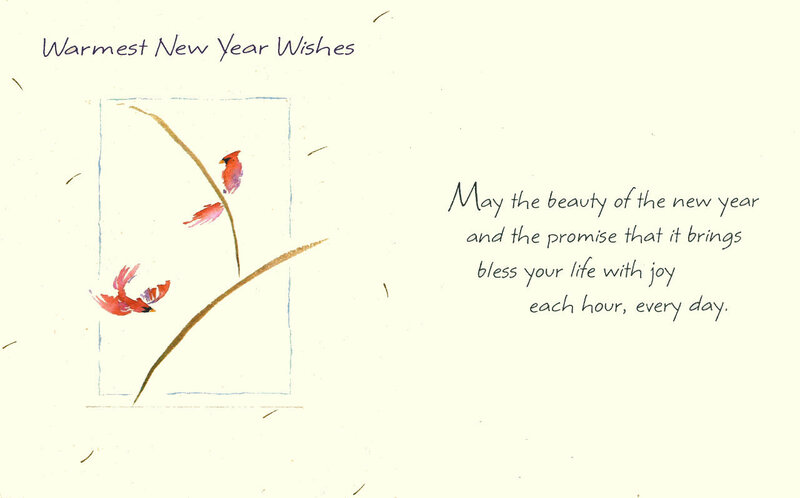 Warmest New Year Wishes
May the beauty of the new year
and the promise that it brings
bless your life with joy
each hour, every day.